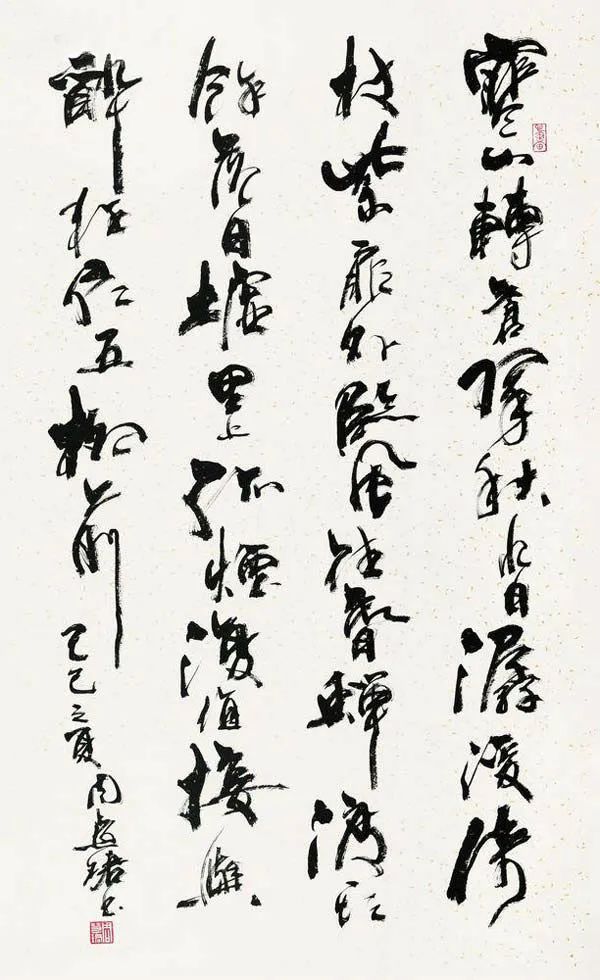 寒山轉蒼翠秋水日潺湲倚
杖柴扉外臨風聽暮蟬渡頭
餘落日墟里上孤煙復值接輿
醉狂歌五柳前 乙巳之夏周书